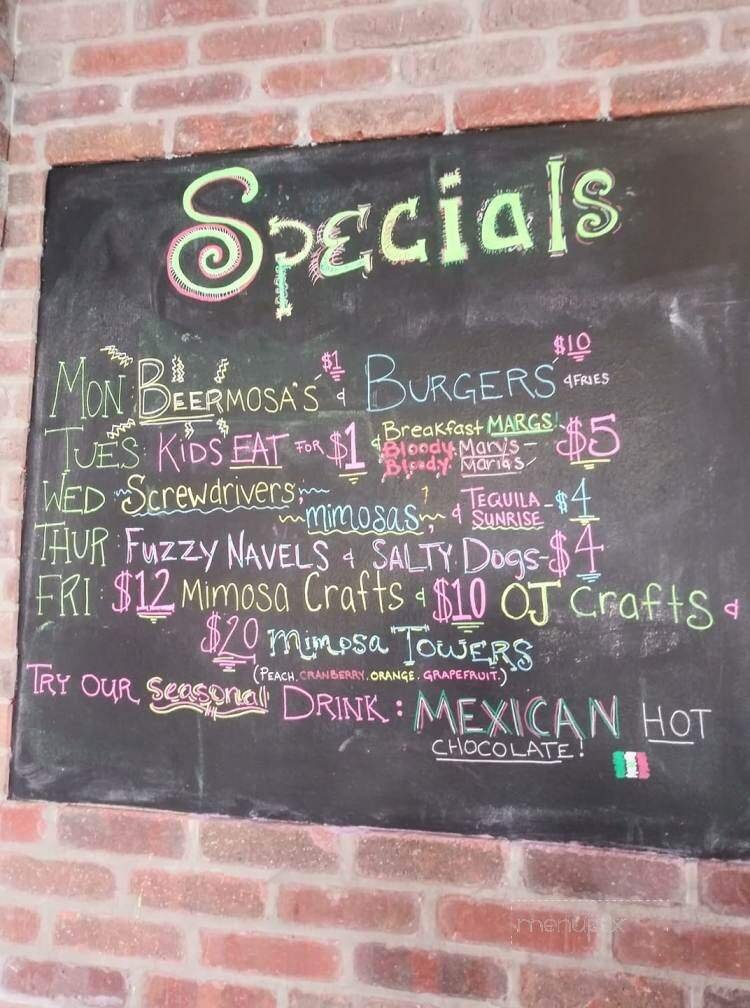 Specials
MON: BEERMOSA'S $1 & BURGERS $10 & FRIES
TUES: KIDS EAT FOR $1 & Breakfast MARGS! Bloody Mary's Bloody Maria's $5
WED Screwdrivers, mimosas, & TEQUILA SUNRISE - $4
THUR FUZZY NAVELS & SALTY DOgs - $4
FRI: $12 Mimosa Crafts & $10 OJ Crafts &
$20 Mimosa TOWERS
(PEACH. CRANBERRY. ORANGE. GRAPEFRUIT.)
TRY OUR Seasonal DRINK: MEXICAN HOT
CHOCOLATE!
menupix